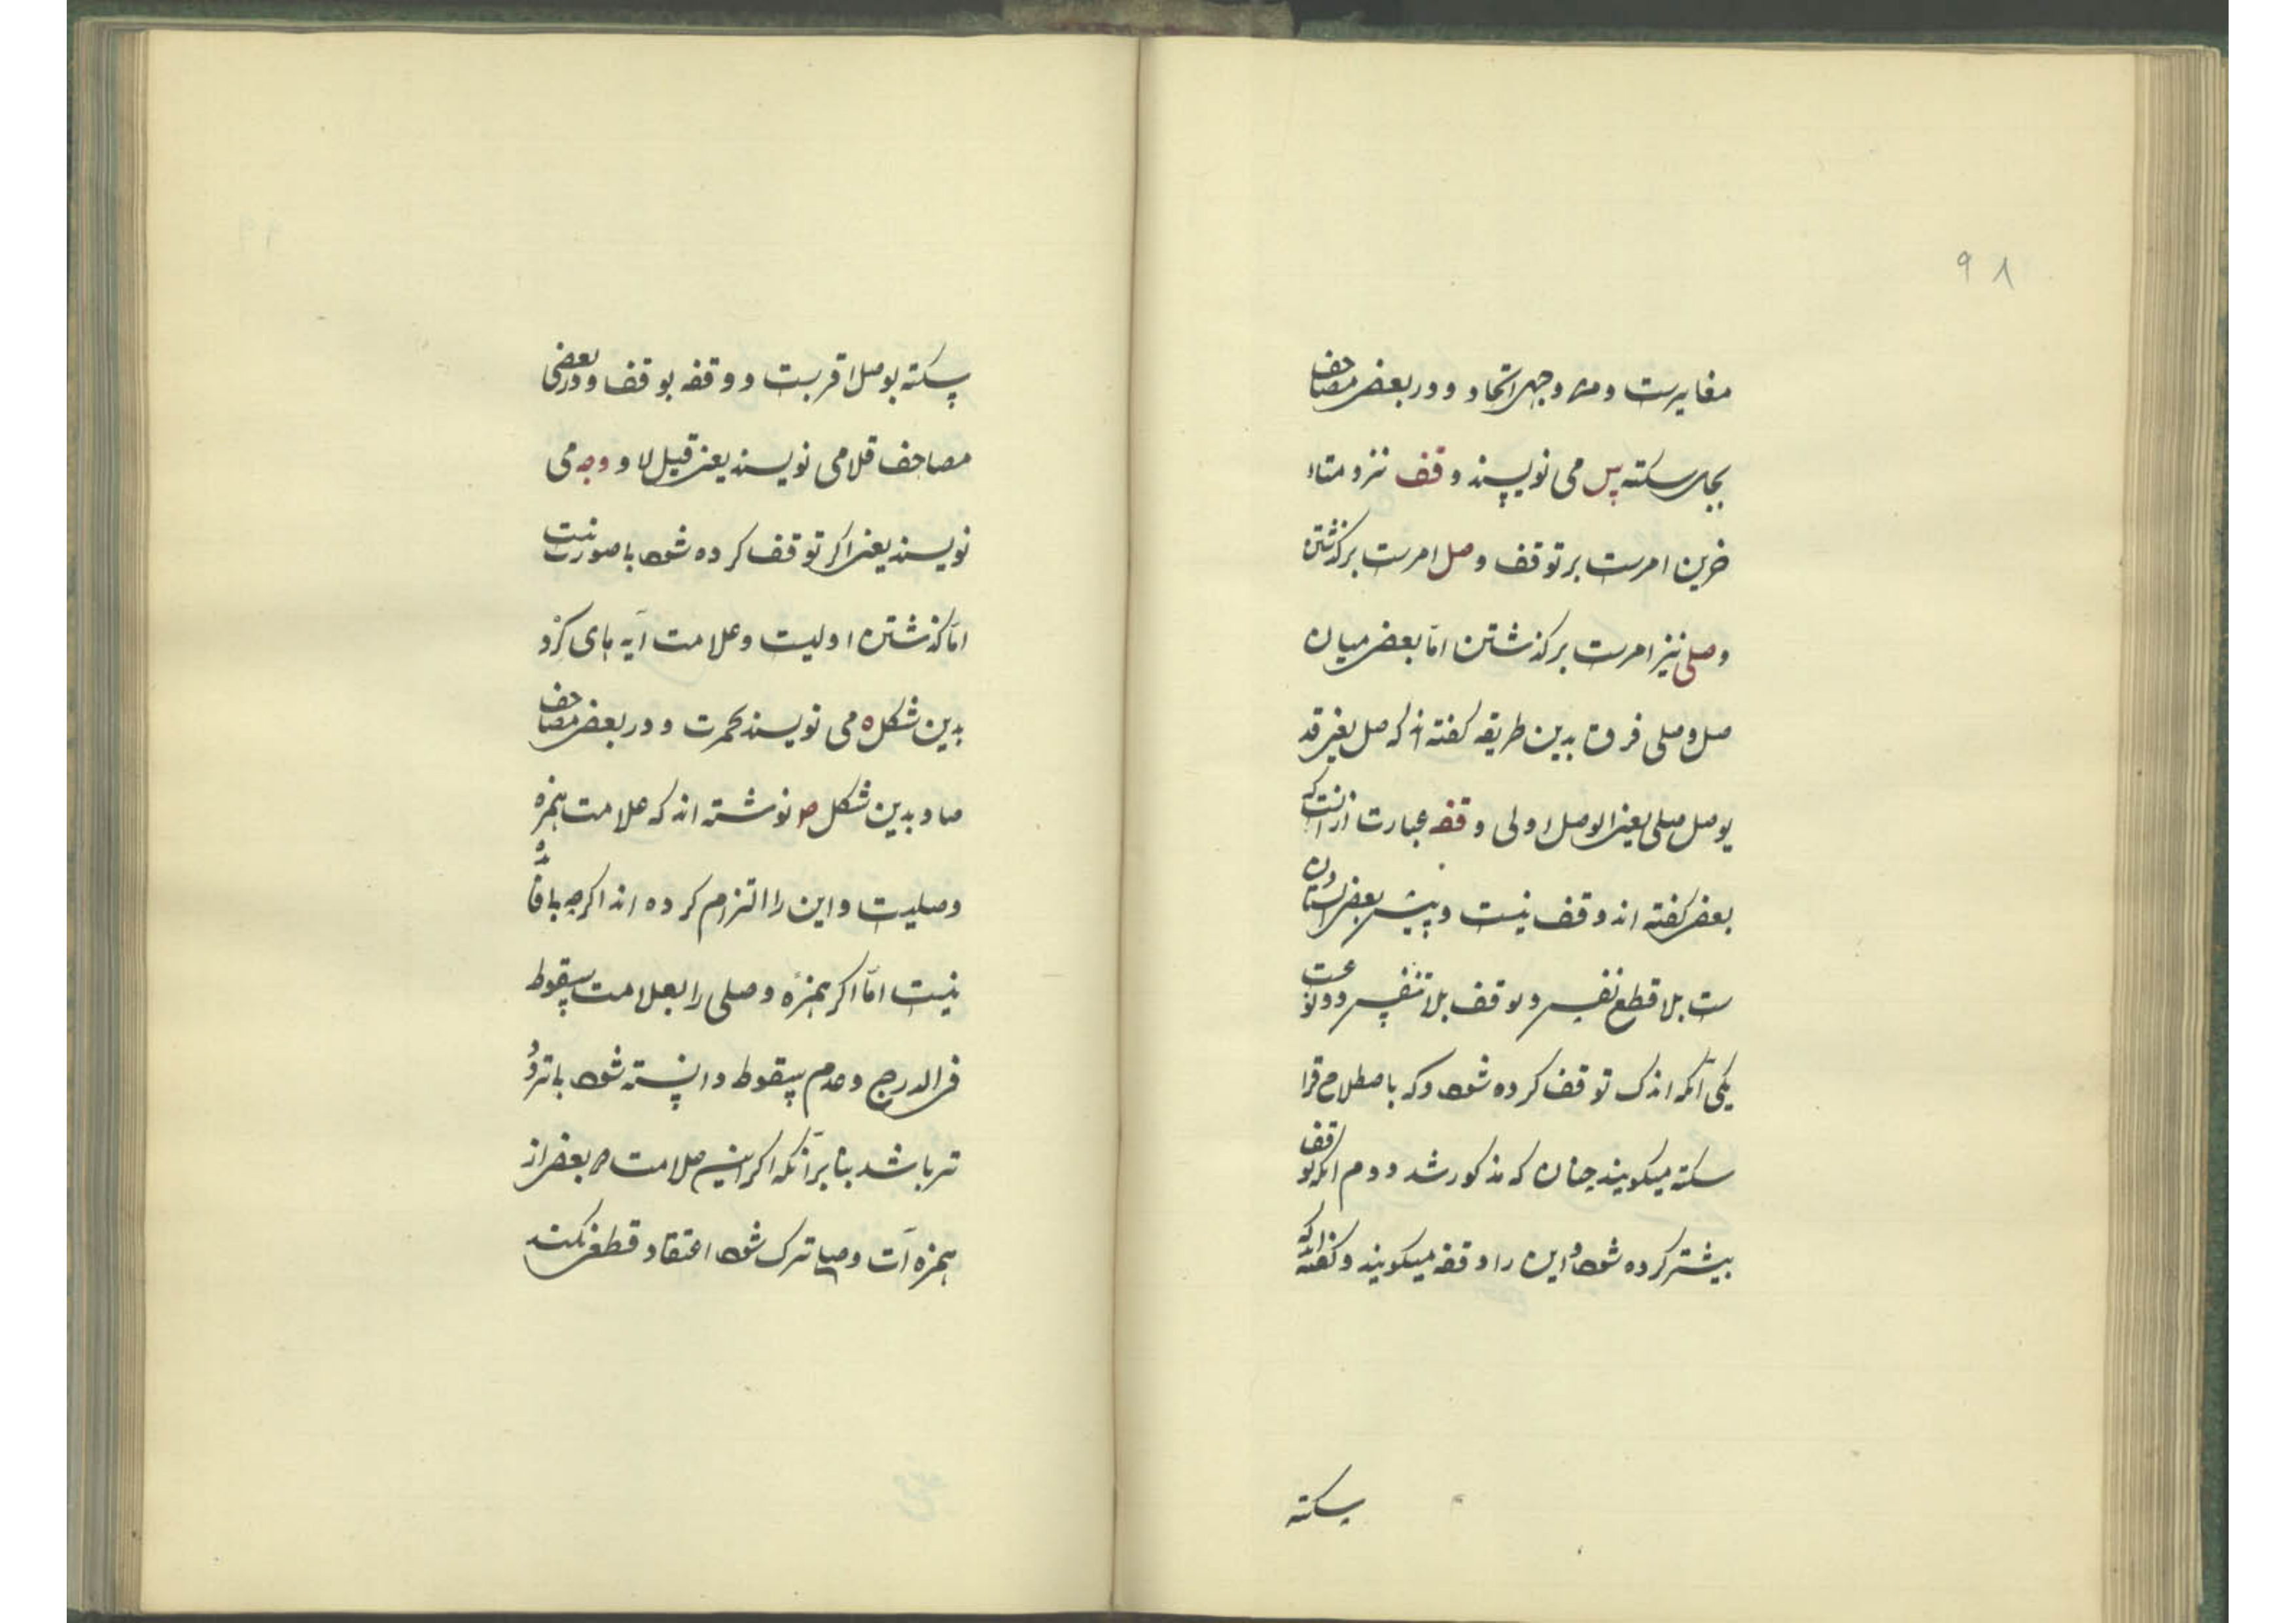 ۹۸
مغایرست ومن وجهی اتحاد ودر بعضی مصاحف
بجای سکته س می نویسند وقف نزد متاء
خرین امرست بر توقف وصل امرست بر کذشتن
وصلی نیز امرست بر کذشتن اما بعضی میان
صل وصلی فرق بدین طریقه کفته اند که صل یعنی قد
یوصل صلی یعنی الوصل اولی وقفه عبارت ازانست که
بعضی کفته اند وقف نیست وپیش بعضی استادان
ست بلا قطع نفس وتوقف بلا تنفس دو نوعست
یکی آنکه اندک توقف کرده شود وکه باصطلاح قرا
سکته میکویند چنان که مذکور شد دوم انکه توقف
بیشتر کرده شود واین را وقفه میکویند وکفته اند که
سکته
سکته بوصل اقربست ووقفه بوقف ودر بعضی
مصاحف قلا می نویسند یعنی قیل لا ووجه می
نویسند یعنی اکر توقف کرده شود با صورنیست
اما کذشتن اولیست وعلامت آیه های کرد
بدین شکل ه می نویسند بحمرت ودر بعضی مصاحف
صاد بدین شکل ص نوشته اند که علامت همزه
وصلیست واین را التزام کرده اند اکرچه بافاده
نیست اما اکر همزه وصلی را بعلامت سقوط
فی الدرج وعدم سقوط دانسته شود با تردد
تر باشد بنا بر آنکه اکر این علامت ص بعضی از
همزه آت وصیا ترک شود اعتقاد قطعی نکند